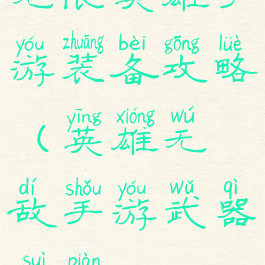 yóu zhuāng bèi gōng lüè
游装备攻略
yīng xióng wú
（英雄无
dí shǒu yóu wǔ qì
敌手游武器
suì piàn